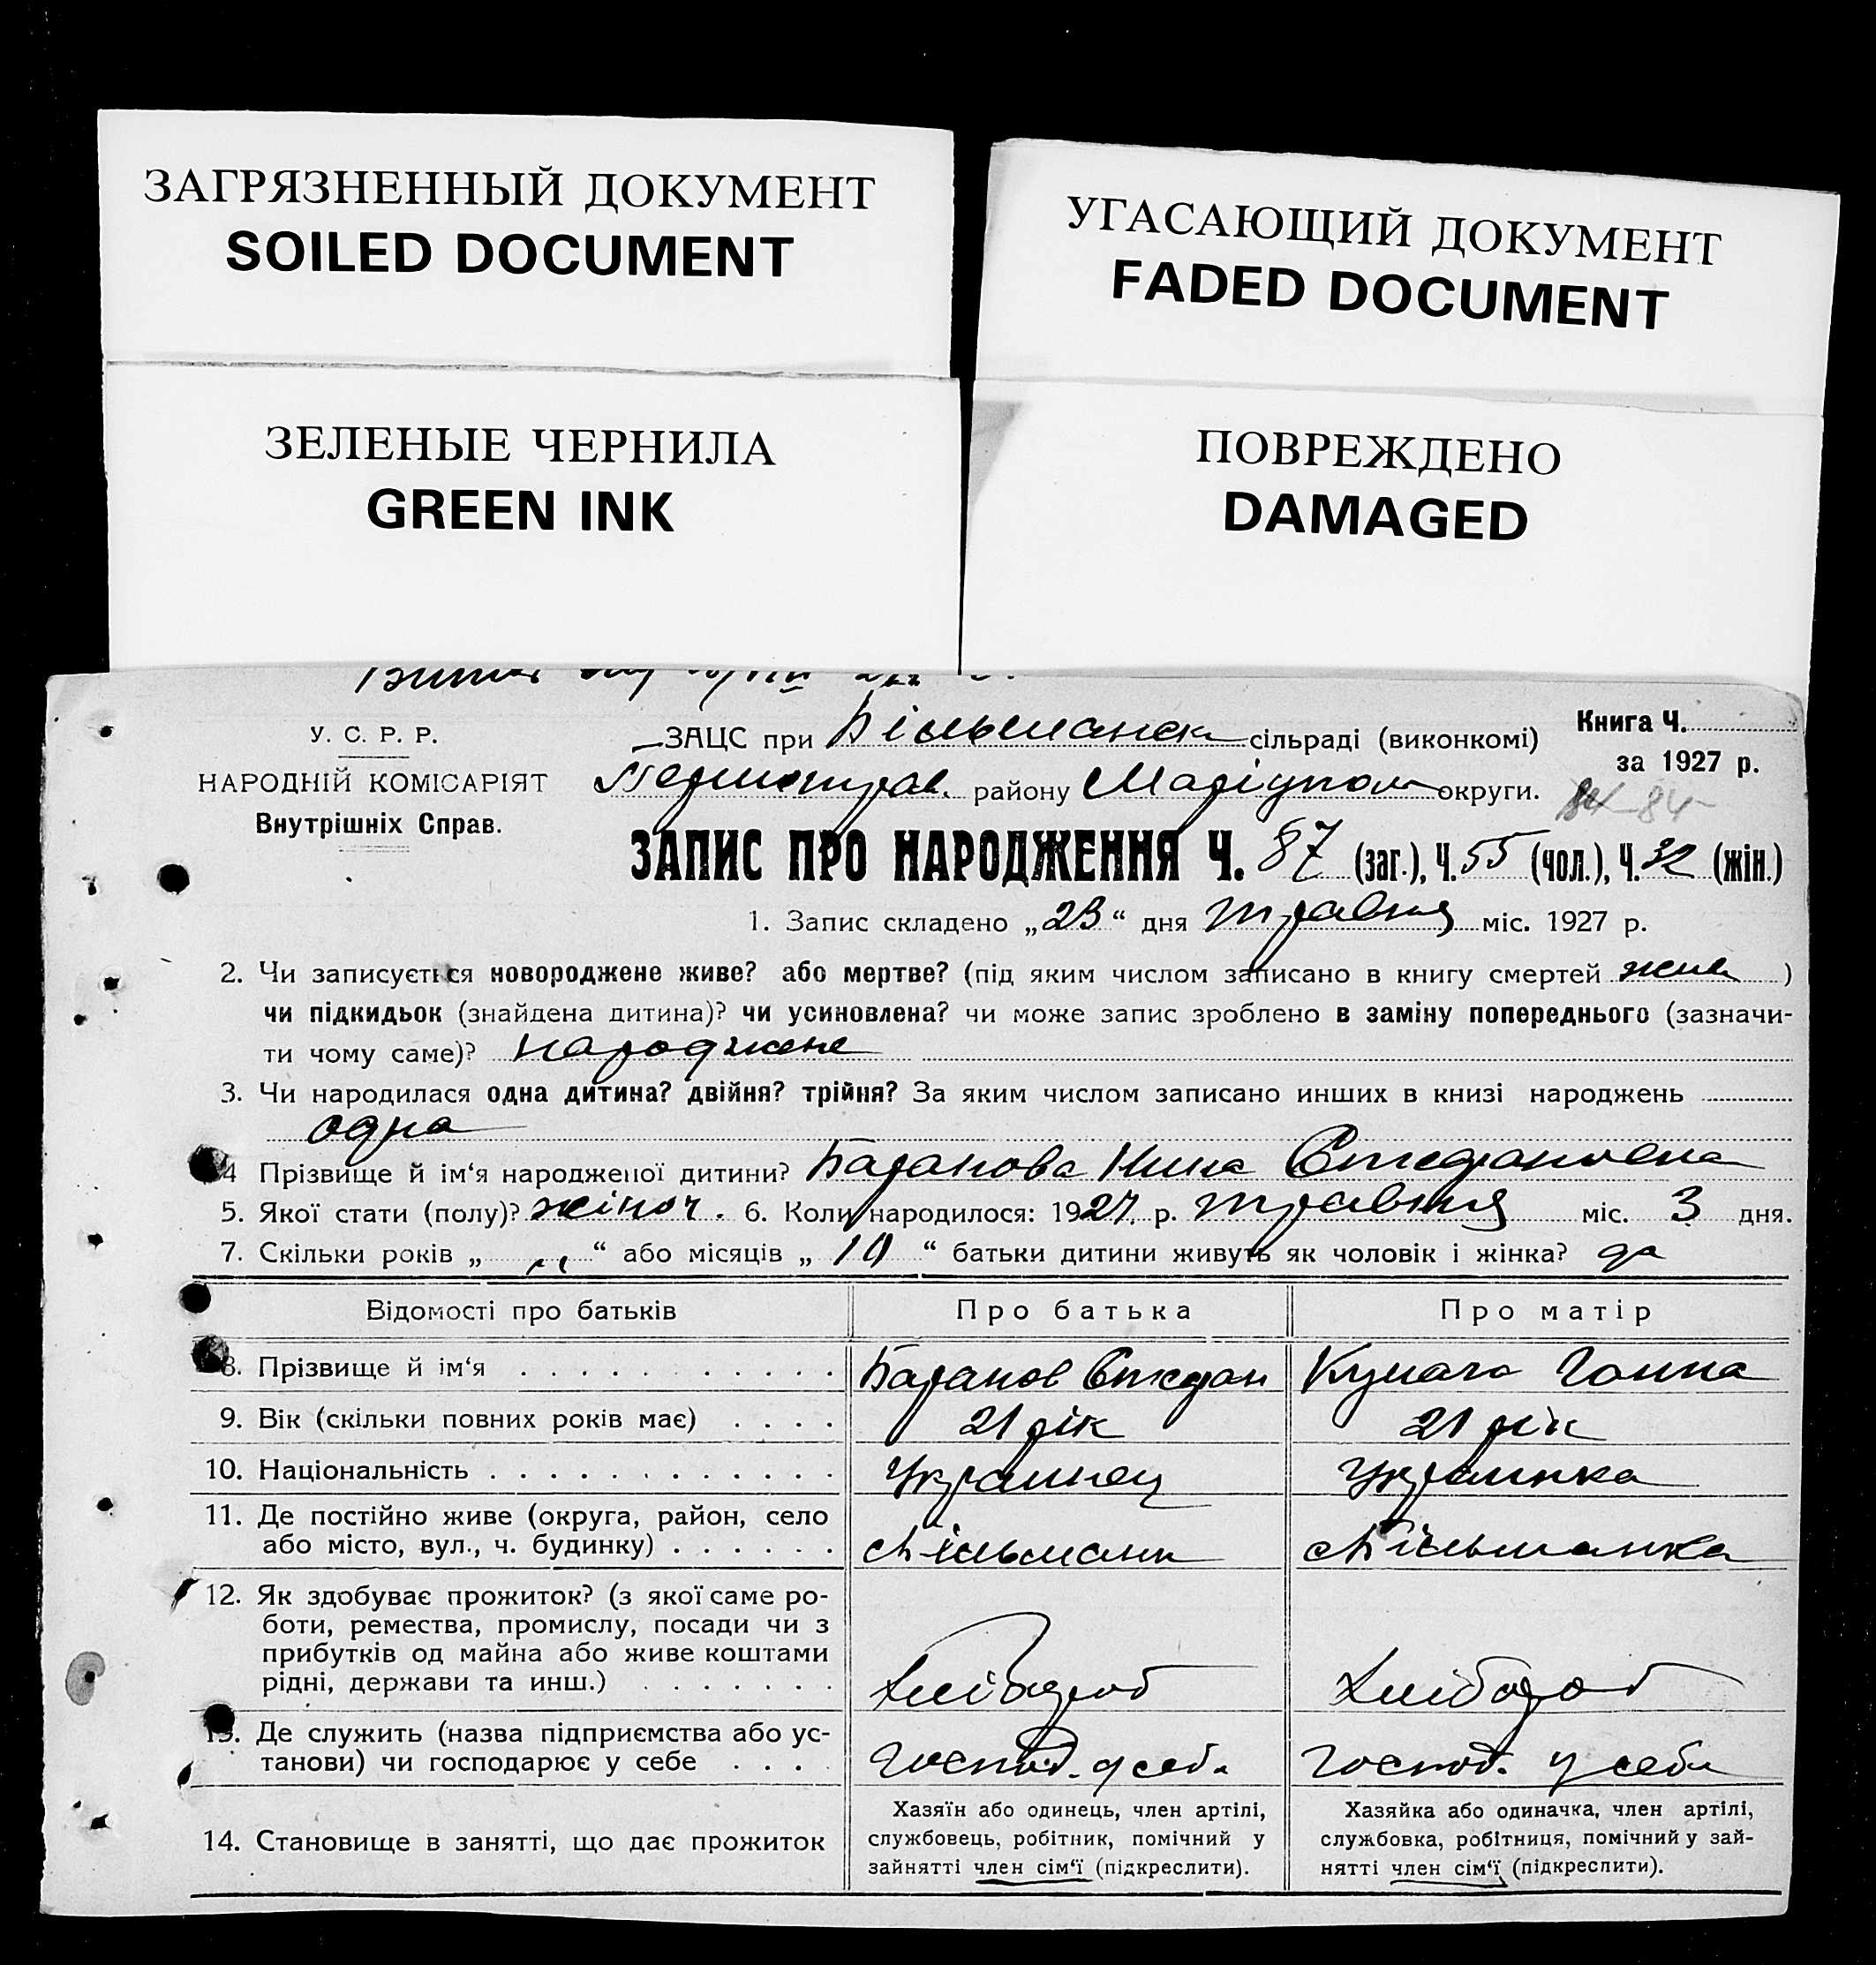 ЗАГРЯЗНЕННЫЙ ДОКУМЕНТ
SOILED DOCUMENT
УГАСАЮЩИЙ ДОКУМЕНТ
FADED DOCUMENT
ЗЕЛЕНЫЕ ЧЕРНИЛА
GREEN INK
ПОВРЕЖДЕНО
DAMAGED
У. С. Р. Р.
НАРОДНІЙ КОМІСАРІЯТ
Внутрішніх Справ.
Книга Ч.
за 1927 р.
84
ЗАЦС при Більманск сільраді (виконкомі)
району Маріупол округи.
ЗАПИС ПРО НАРОДЖЕННЯ Ч. 87 (заг.), Ч. 55 (чол.), Ч. 32 (жін.)
1. Запис складено „23“ дня травня міс. 1927 р.
2. Чи записується новороджене живе? або мертве? (під яким числом записано в книгу смертей живе )
чи підкидьок (знайдена дитина)? чи усиновлена? чи може запис зроблено в заміну попереднього (зазначи-
ти чому саме)? народжене
3. Чи народилася одна дитина? двійня? трійня? За яким числом записано инших в книзі народжень
одна
4 Прізвище й ім‘я народженої дитини? Баранова Нина Стефановна
5. Якої стати (полу)? жіноч. 6. Коли народилося: 1927. р. травня міс. 3 дня.
7. Скільки років „ „ “ або місяців „ 10 “ батьки дитини живуть як чоловік і жінка? да
Відомості про батьків Про батька Про матір
8. Прізвище й ім‘я Баранов Стефан Ганна
9. Вік (скільки повних років має) 21 рік 21 рік
10. Національність Украинец Украинка
11. Де постійно живе (округа, район, село
або місто, вул., ч. будинку) Більманка
12. Як здобуває прожиток? (з якої саме ро-
боти, ремества, промислу, посади чи з
прибутків од майна або живе коштами
рідні, держави та инш.) Хлібороб Хлібороб
13. Де служить (назва підприємства або ус-
танови) чи господарює у себе Господ. у себе Господ. у себе
14. Становище в занятті, що дає прожиток
Хазяїн або одинець, член артілі,
службовець, робітник, помічний у
зайнятті член сім‘ї (підкреслити).
Хазяйка або одиначка, член артілі,
службовка, робітниця, помічний у зай-
нятті член сім‘ї (підкреслити).